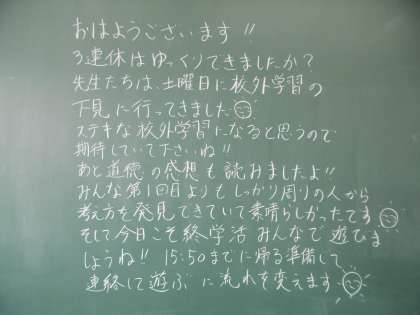 おはようございます!!
3連休はゆっくりできましたか?
先生たちは、土曜日に校外学習の
下見に行ってきました
ステキな校外学習になると思うので
期待していて下さいね!!
あと道徳の感想も読みましたよ!!
みんな第1回目よりもしっかり周りの人から
考え方を発見できていて素晴らしかったです
そして今日こそ終学活みんなで遊びま
しょうね!! 15:50までに帰る準備して
連絡して遊ぶに流れを変えます